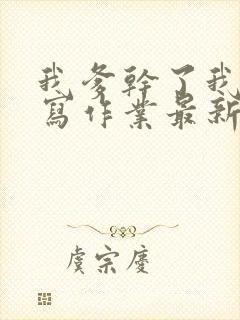 我爹幹了我
寫作業最新
虞宗慶